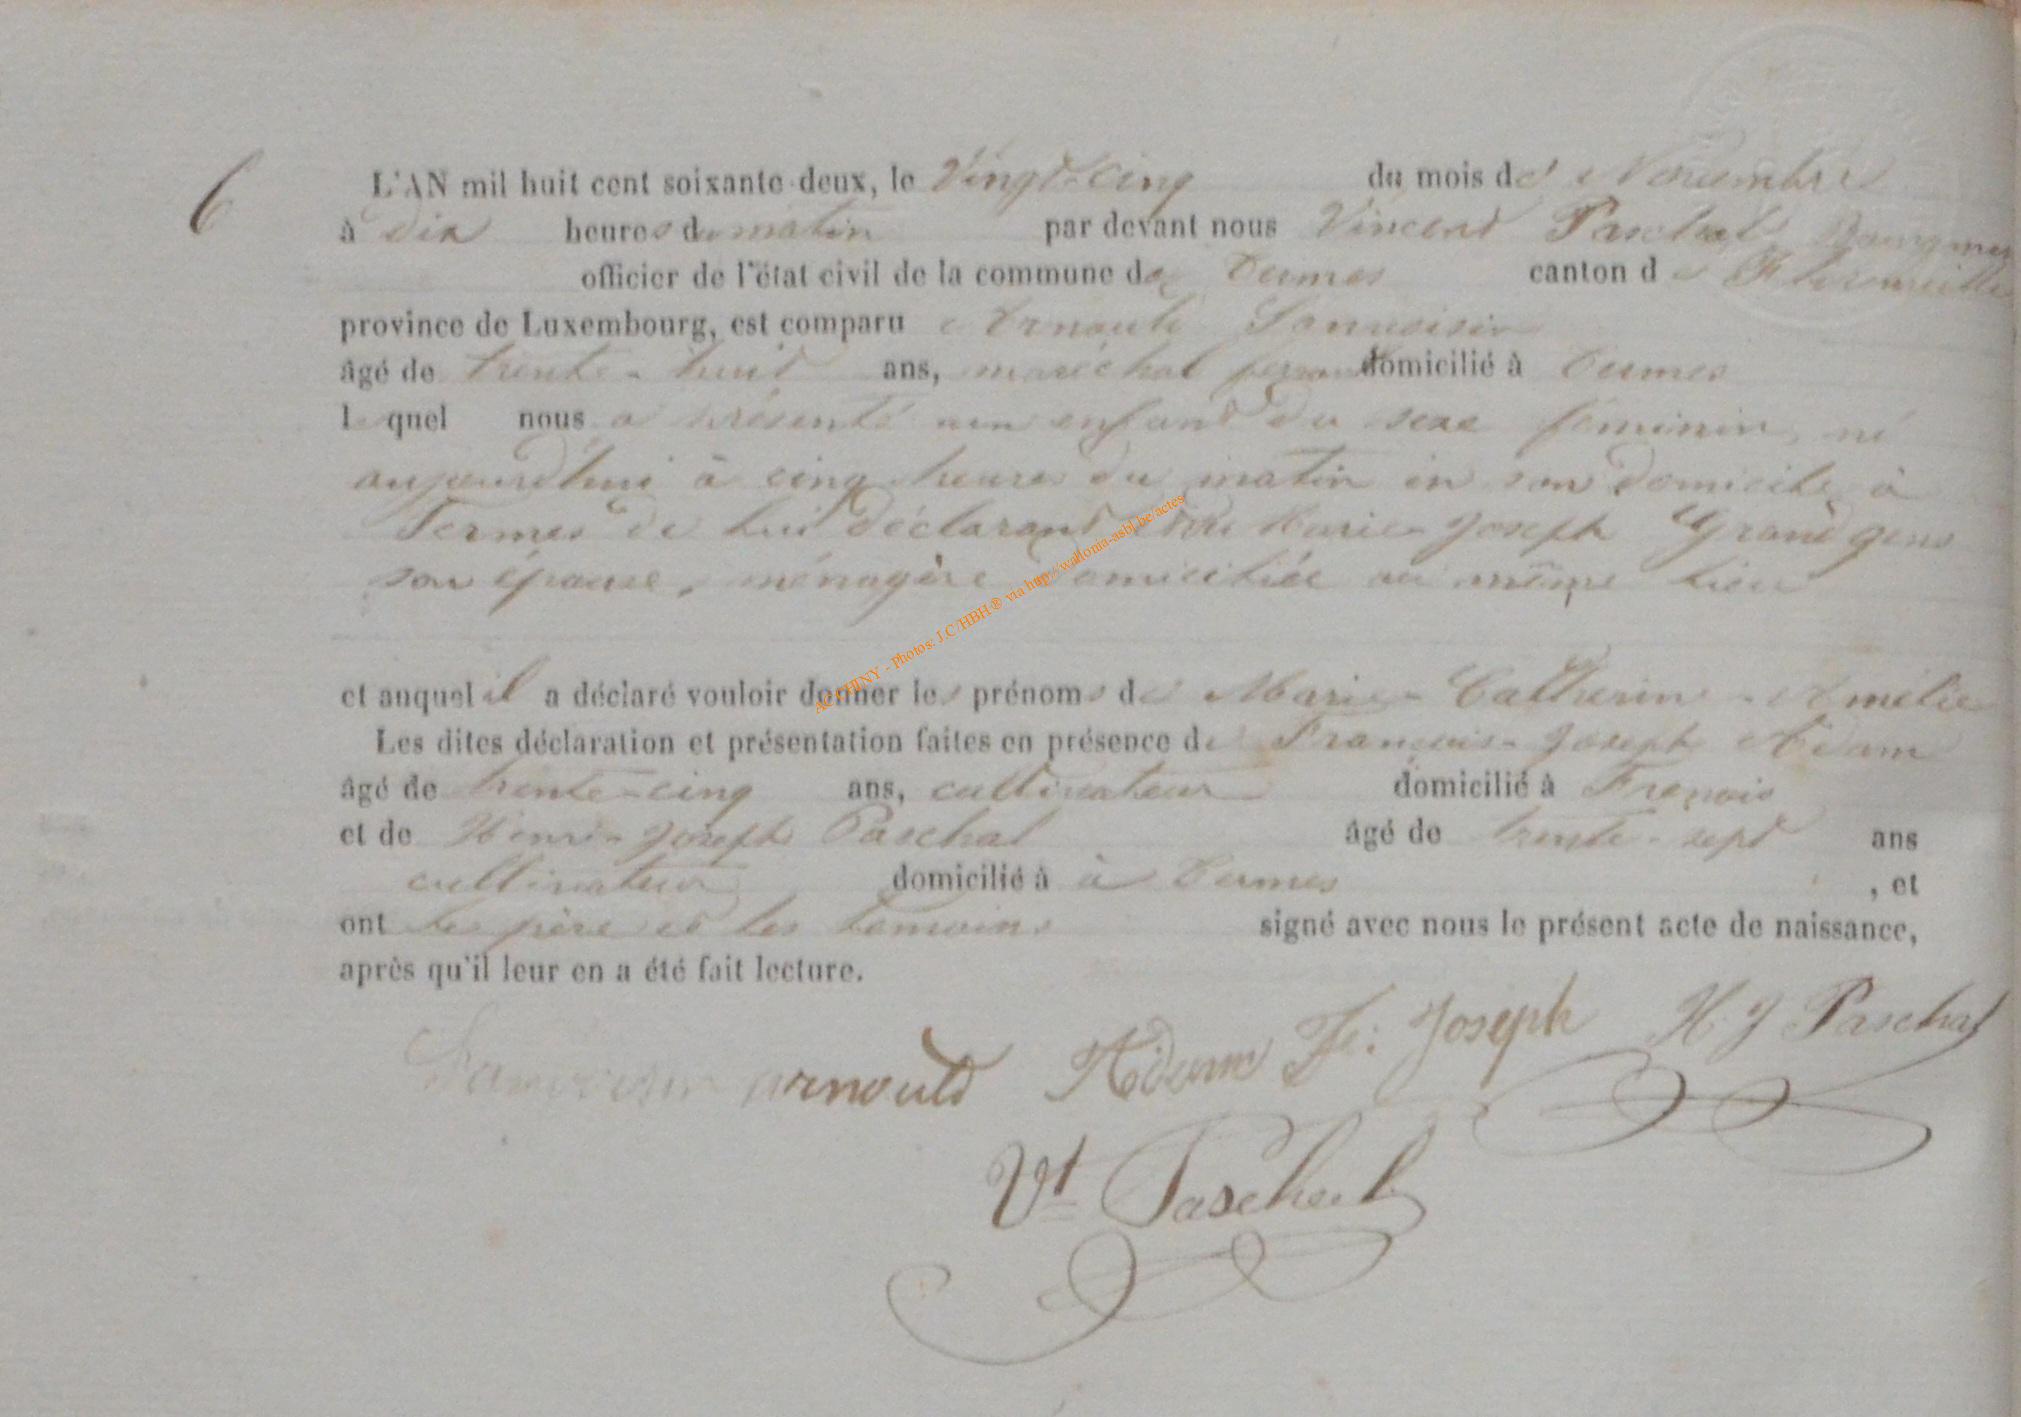 6
L'AN mil huit cent soixante-deux, le Vingt-Cinq du mois de Novembre
à dix heures du matin par devant nous Vincent Paschal, Bourgmes
officier de l'état civil de la commune de Termes canton de Florenville
province de Luxembourg, est comparu Arnould
âgé de trente-huit ans, maréchal ferrant domicilié à Termes
lequel nous a présenté un enfant du sexe féminin, né
aujourd'hui à cinq heures du matin en son domicile à
Termes de lui déclarant et de Marie-Joseph Grandgens
son épouse, ménagère domiciliée au même lieu
et auquel il a déclaré vouloir donner les prénoms de Marie-Catherine-Amélie
Les dites déclaration et présentation faites en présence de François-Joseph Adam
âgé de trente-cinq ans, cultivateur domicilié à Frenois
et de Henri-Joseph Paschal âgé de trente-sept ans
cultivateur domicilié à à Termes , et
ont les père et les témoins signé avec nous le présent acte de naissance,
après qu'il leur en a été fait lecture.
arnould Adam Fr: Joseph H. J Paschal
Vt Paschal
ACCHINY - Photos: J.C/HBH® via http://wallonia-asbl.be/actes